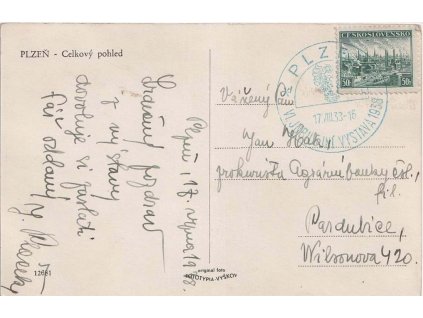 PLZEŇ - Celkový pohled
Plzeň, 17. srpna 1938.
Srdečný pozdrav
z výstavy
dovoluje si zaslati
Váš oddaný
J.
12681
original foto
FOTOTYPIA-VYŠKOV
ČESKOSLOVENSKO
50h
PLZEŇ
17.VIII.38-16
VÝSTAVA 1938
Vážený Pan
Jan
prokurista Agrární banky čsl.
fil.
Pardubice,
Wilsonova 420.